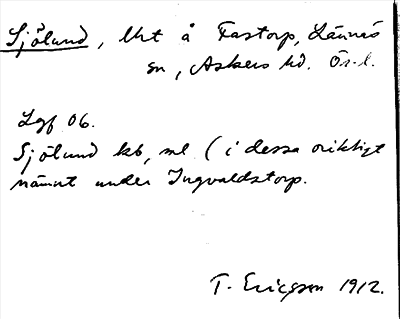 Sjölund, lht å Fastorp, Lännäs
sn, Askers hd. Ör. l.
Lgf 06.
Sjölund kb, ml (i dessa oriktigt
nämnt under Ingvaldstorp.
T. Ericsson 1912.